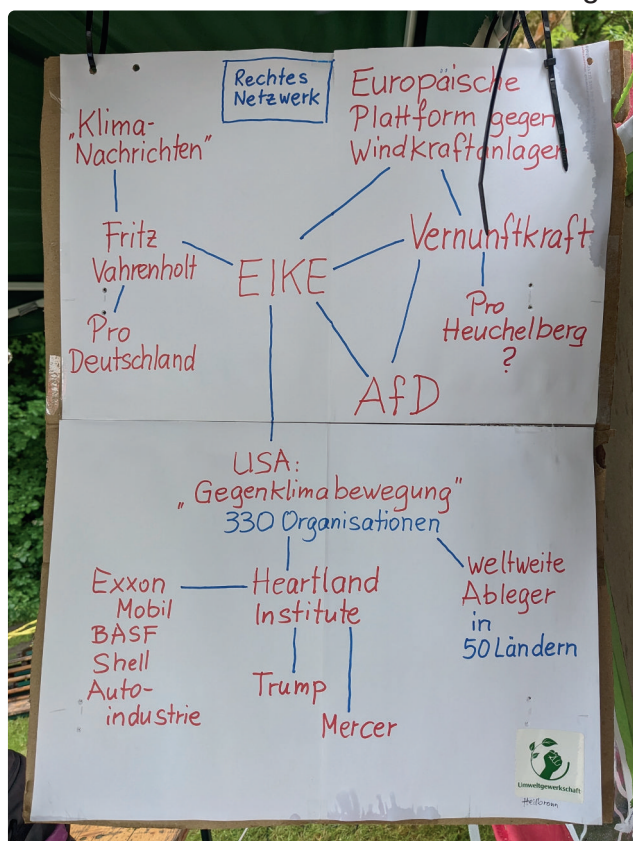 Rechtes
Netzwerk
„Klima-
Nachrichten"
Europäische
Plattform gegen
Windkraftanlagen
Fritz
Vahrenholt
EIKE
Vernunftkraft
Pro
Deutschland
Pro
Heuchelberg
?
AfD
USA:
„Gegenklimabewegung"
330 Organisationen
Exxon
Mobil
BASF
Shell
Auto-
industrie
Heartland
Institute
weltweite
Ableger
in
50 Ländern
Trump
Mercer
Umweltgewerkschaft
Heilbronn